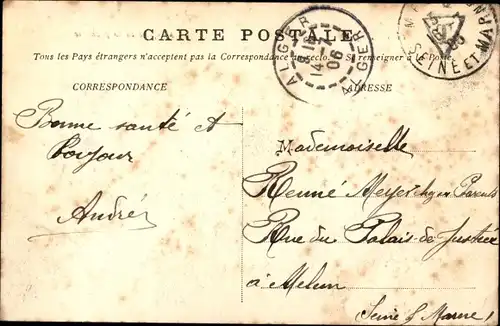 CARTE POSTALE
Tous les Pays étrangers n'acceptent pas la Correspondance au recto. Se renseigner à la Poste.
ALGER
14-
06
ALGER
SEINE ET MARNE
CORRESPONDANCE
ADRESSE
Bonne santé et
bonjour
André
Mademoiselle
Renné Meyer chez ses Parents
Rue du Palais-de-Justice
à Melun
Seine & Marne